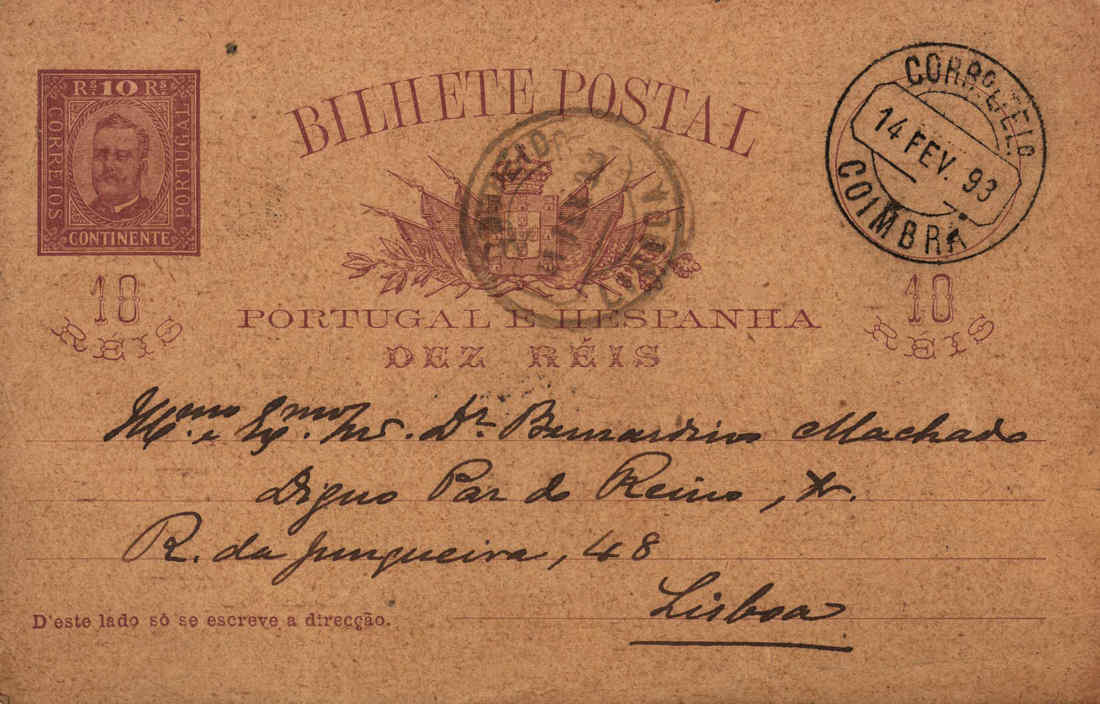 Rˢ 10 Rˢ
CORREIOS
PORTUGAL
CONTINENTE
10
RÉIS
BILHETE POSTAL
PORTUGAL E HESPANHA
DEZ RÉIS
10
RÉIS
14 FEV. 93
COIMBRA
Illᵐᵒ e Exᵐᵒ Snr. Dr. Bernardino Machado
Digno Par do Reino, &.
R. da Junqueira, 48
Lisboa
D'este lado só se escreve a direcção.